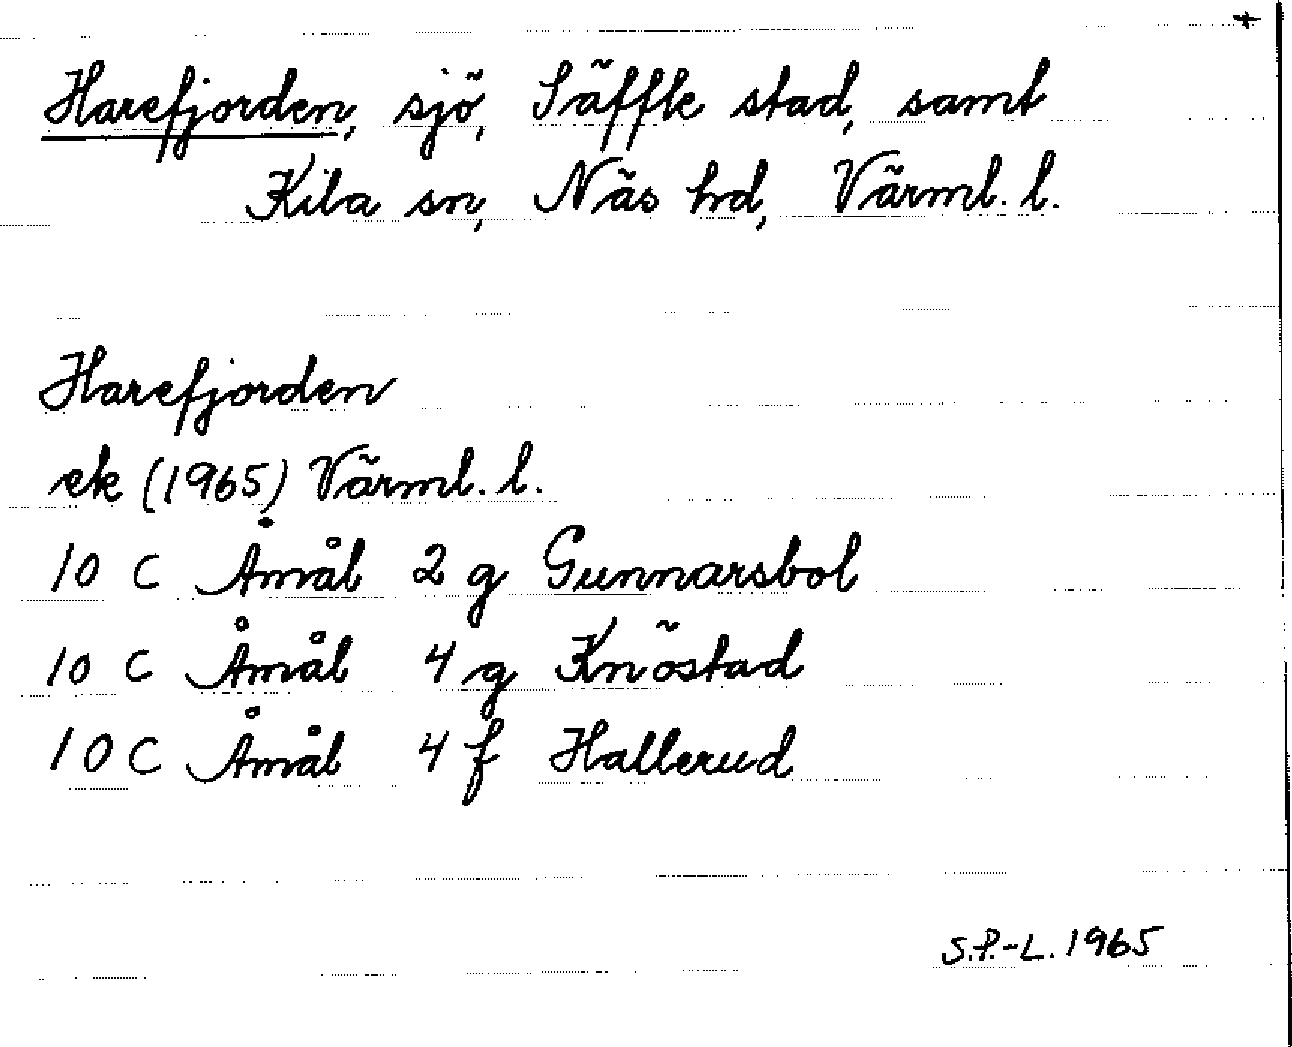 +
Harefjorden, sjö, Säffle stad, samt
Kila sn, Näs hd, Värml. l.
Harefjorden
ek (1965) Värml. l.
10 C Åmål 2 g Gunnarsbol
10 C Åmål 4 g Knöstad
10 C Åmål 4 f Hallerud
S.P.-L. 1965